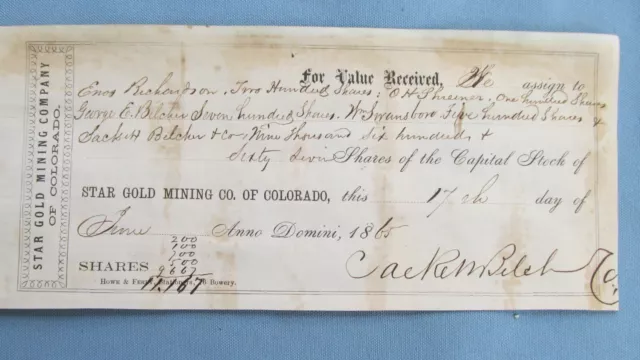 STAR GOLD MINING COMPANY
OF COLORADO.
For Value Received, We assign to
Enos Richardson, Two Hundred Shares; O H Shreiner, One hundred Shares
George E. Belcher Seven hundred Shares. Wm Swansboro Five Hundred Shares &
Sackett Belcher & Co, Nine Thousand six hundred &
Sixty Seven Shares of the Capital Stock of
STAR GOLD MINING CO. OF COLORADO, this 17th day of
June Anno Domini, 1865
200
100
700
500
SHARES 9667
11.167
Sackett Belcher & Co
Howe & Stationers, Bowery.